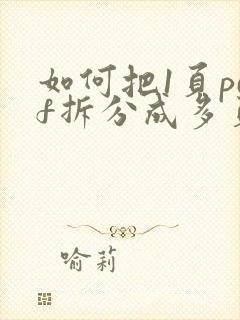 如何把1頁pd
f拆分成多頁
喻莉